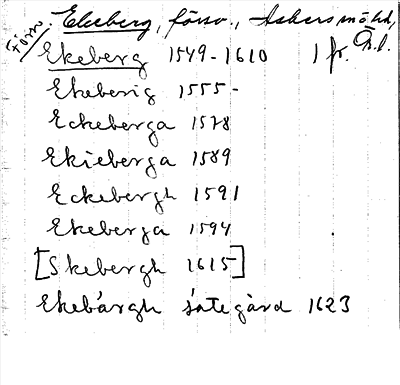 Förn.
Ekeberg, försv., Askers sn o hd,
Ö.l.
Ekeberg 1549-1610 1 fr.
Ekeberig 1555-
Eckeberga 1578
Ekieberga 1589
Eckebergh 1591
Ekeberga 1594
[Skebergh 1615]
Ekebårgh sätegård 1623